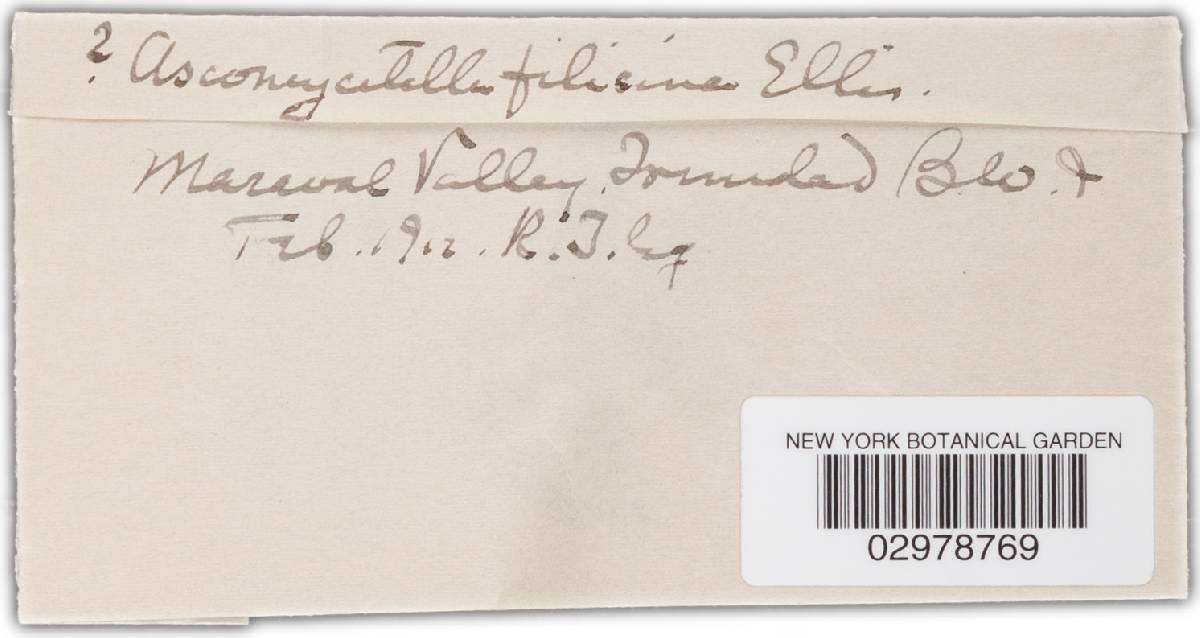 ? Ascomycetella filicina Ellis.
Maraval Valley, Trinidad B.W.I
Feb. 1912. R. T.
NEW YORK BOTANICAL GARDEN
02978769